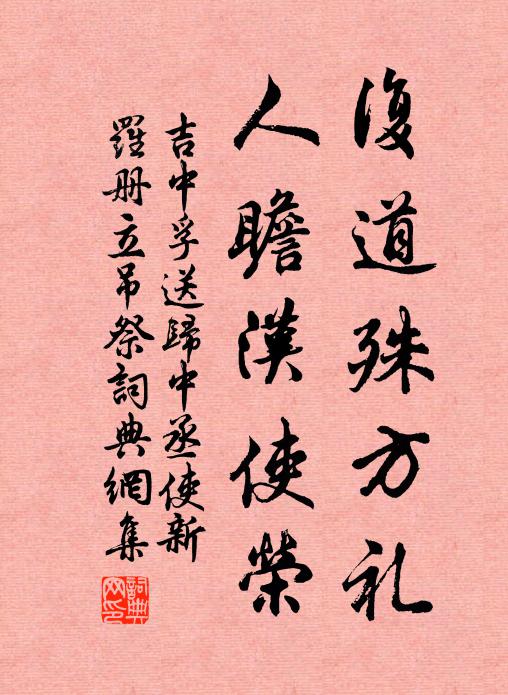 復道殊方礼
人瞻漢使榮
吉中孚送歸中丞使新
羅册立吊祭詞典網集
詞典
网印